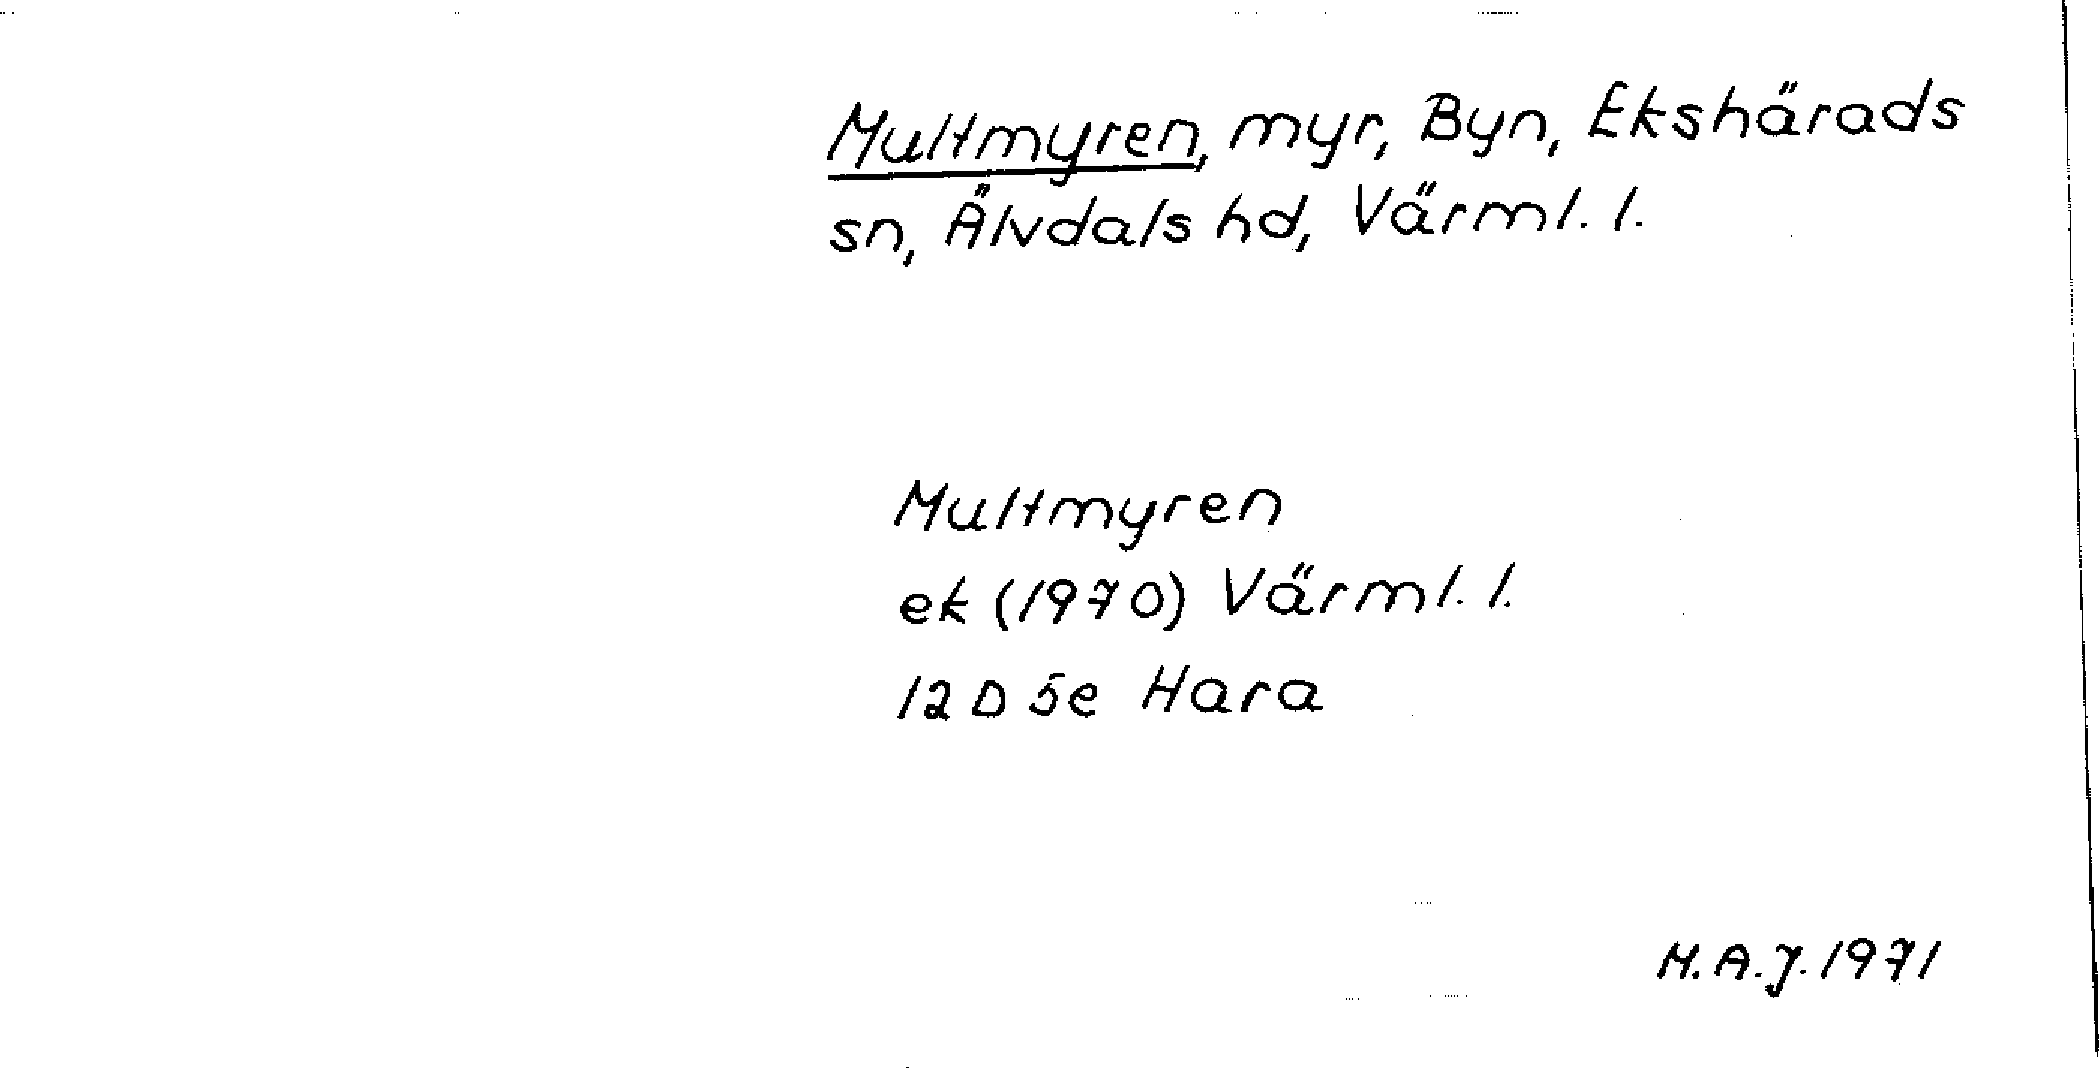 Multmyren, myr, Byn, Ekshärads
sn, Älvdals hd, Värml. l.
Multmyren
ek (1970) Värml. l.
12 D 5e Hara
M. A. J. 1971